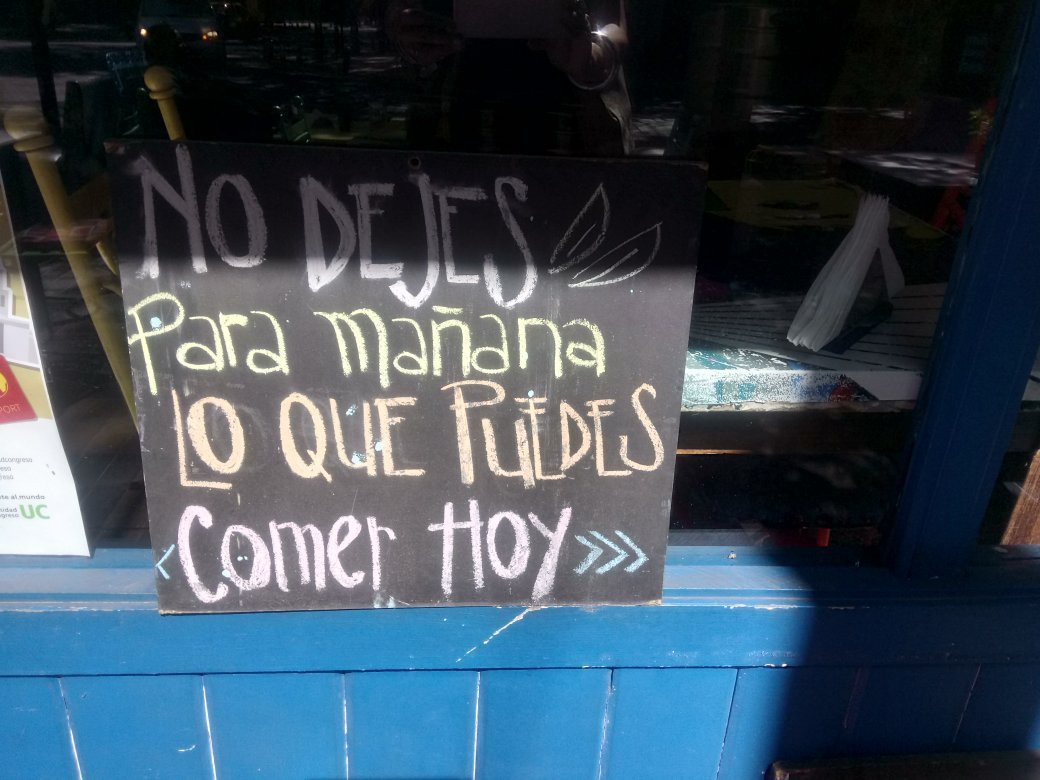 NO DEJES
Para mañana
LO QUE PUEDES
Comer Hoy
PORT
UC